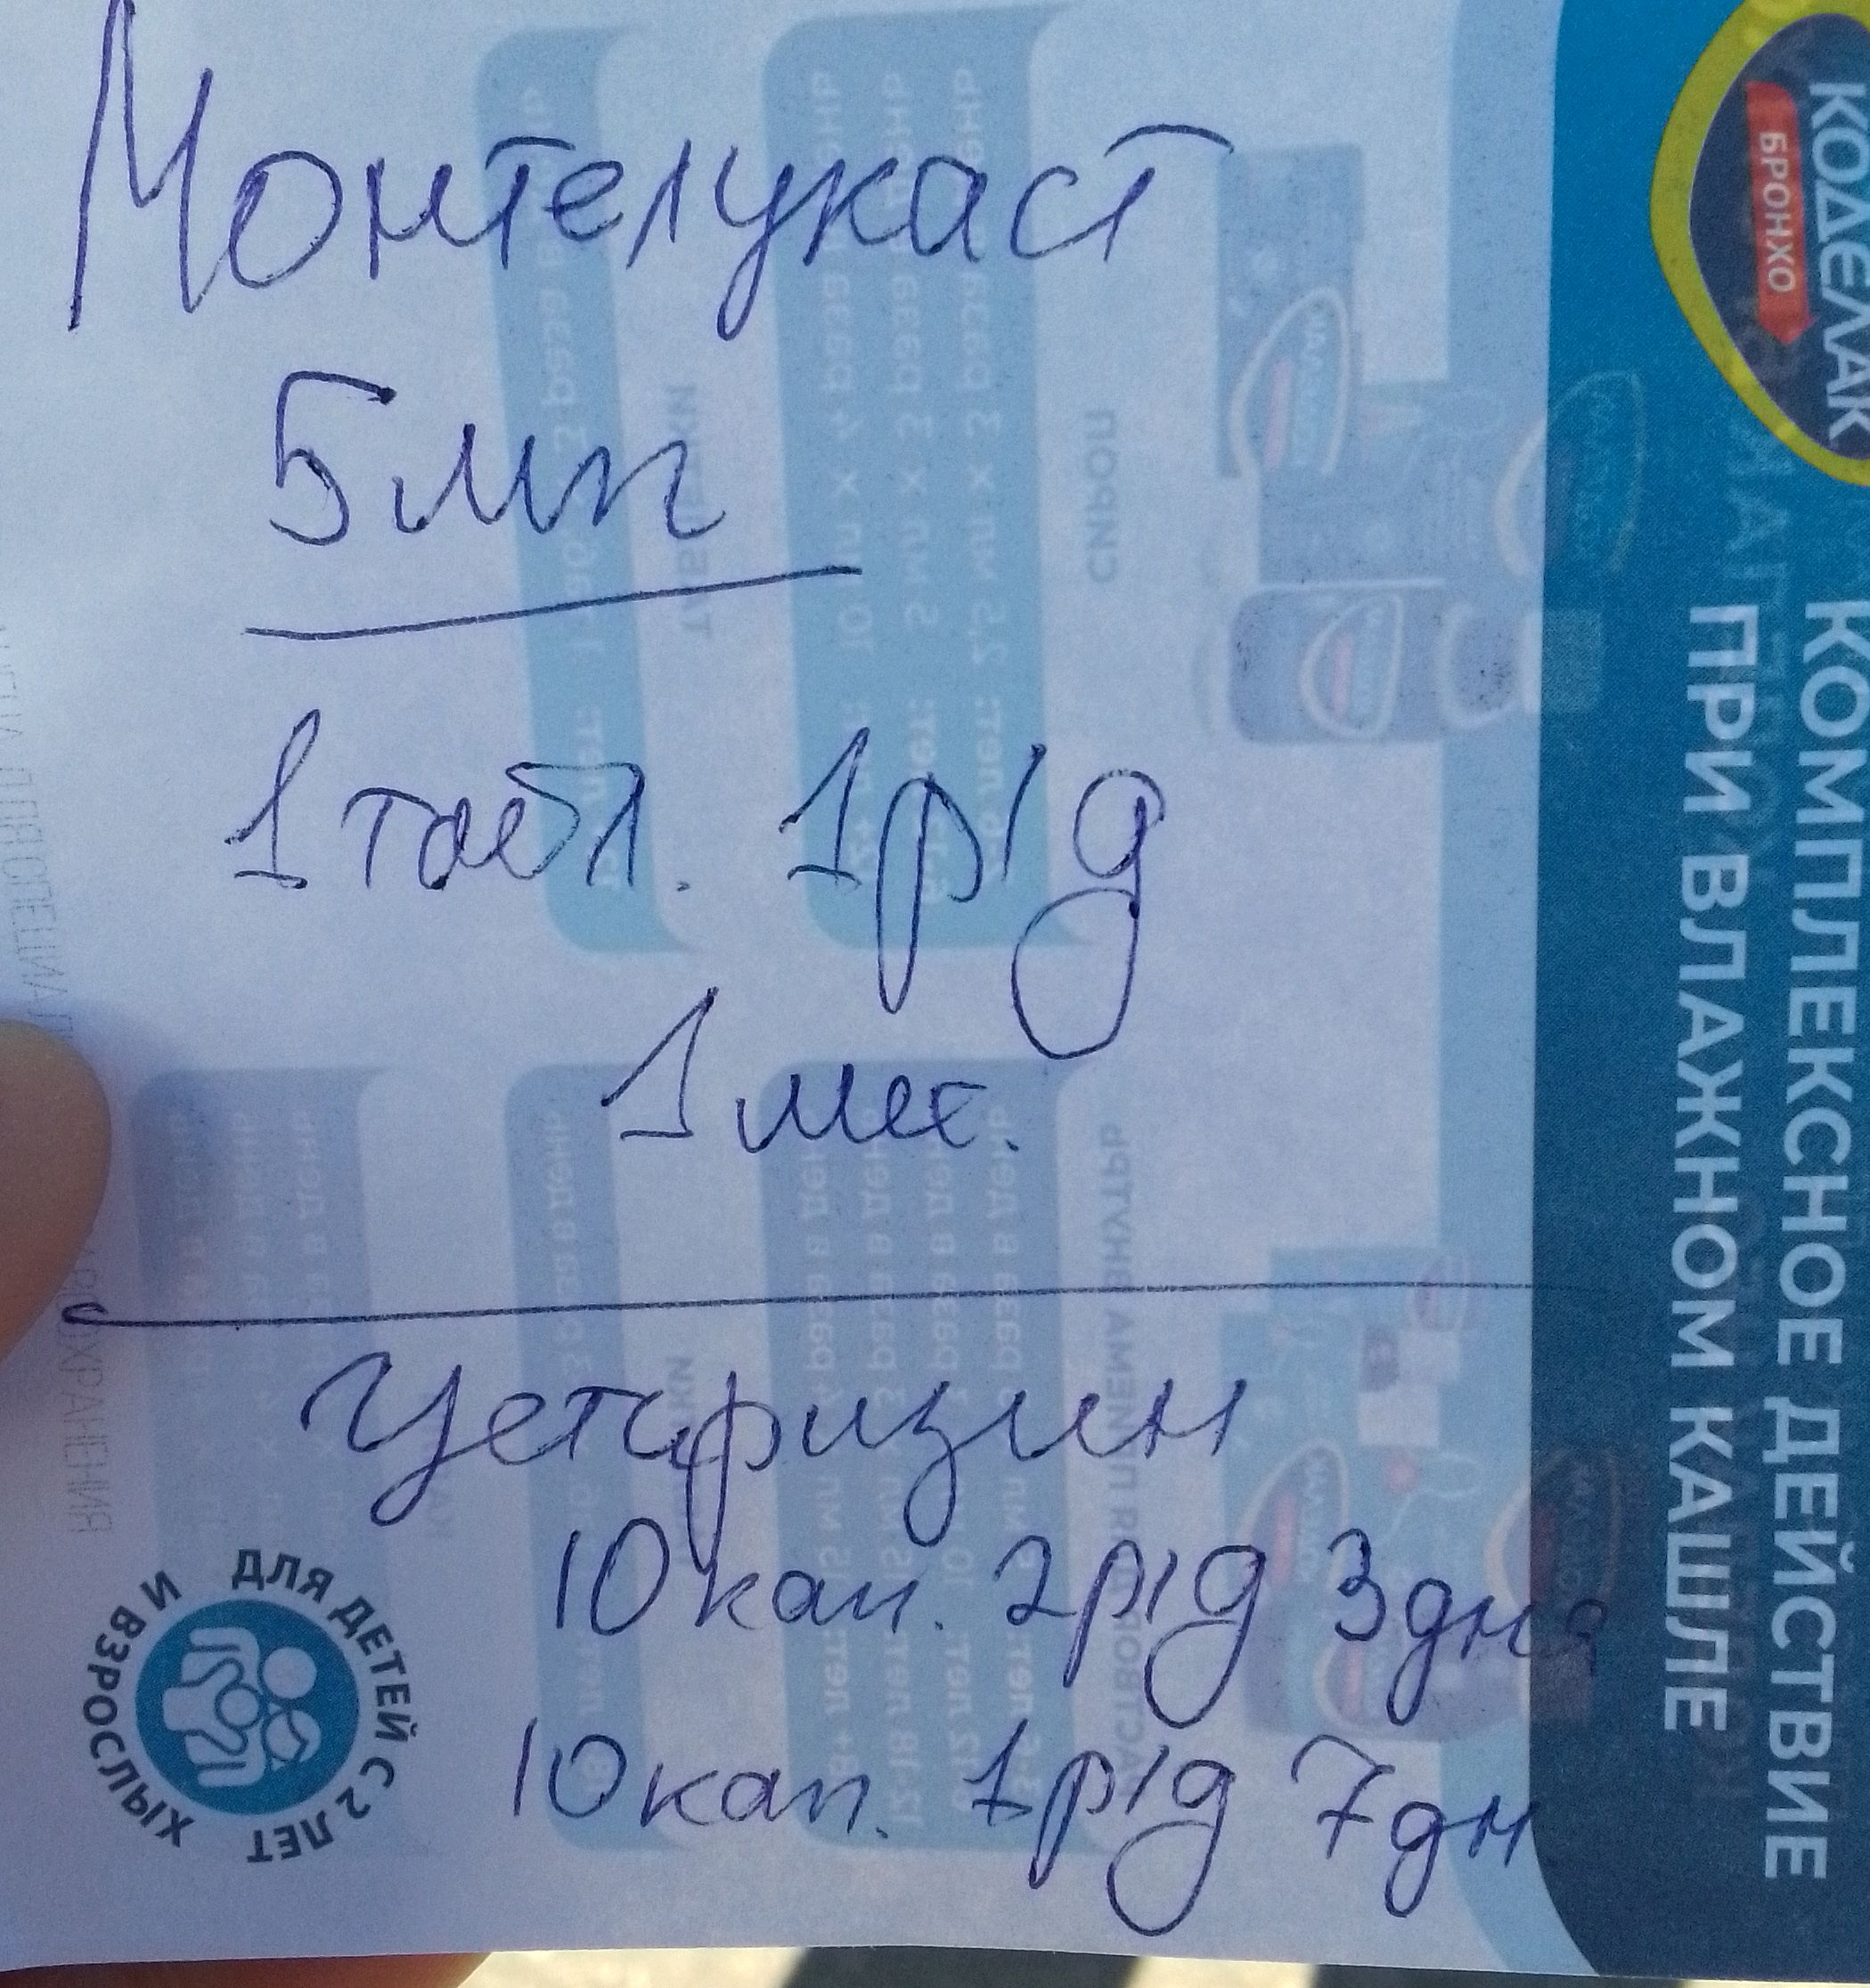 Монтелукаст
5 мг
1 табл. 1 р/д
1 мес.
Цетиризин
10 кап. 2 р/д 3 дня
10 кап. 1 р/д 7 дн
КОДЕЛАК
БРОНХО
КОМПЛЕКСНОЕ ДЕЙСТВИЕ
ПРИ ВЛАЖНОМ КАШЛЕ
ДЛЯ ДЕТЕЙ С 2 ЛЕТ
И ВЗРОСЛЫХ